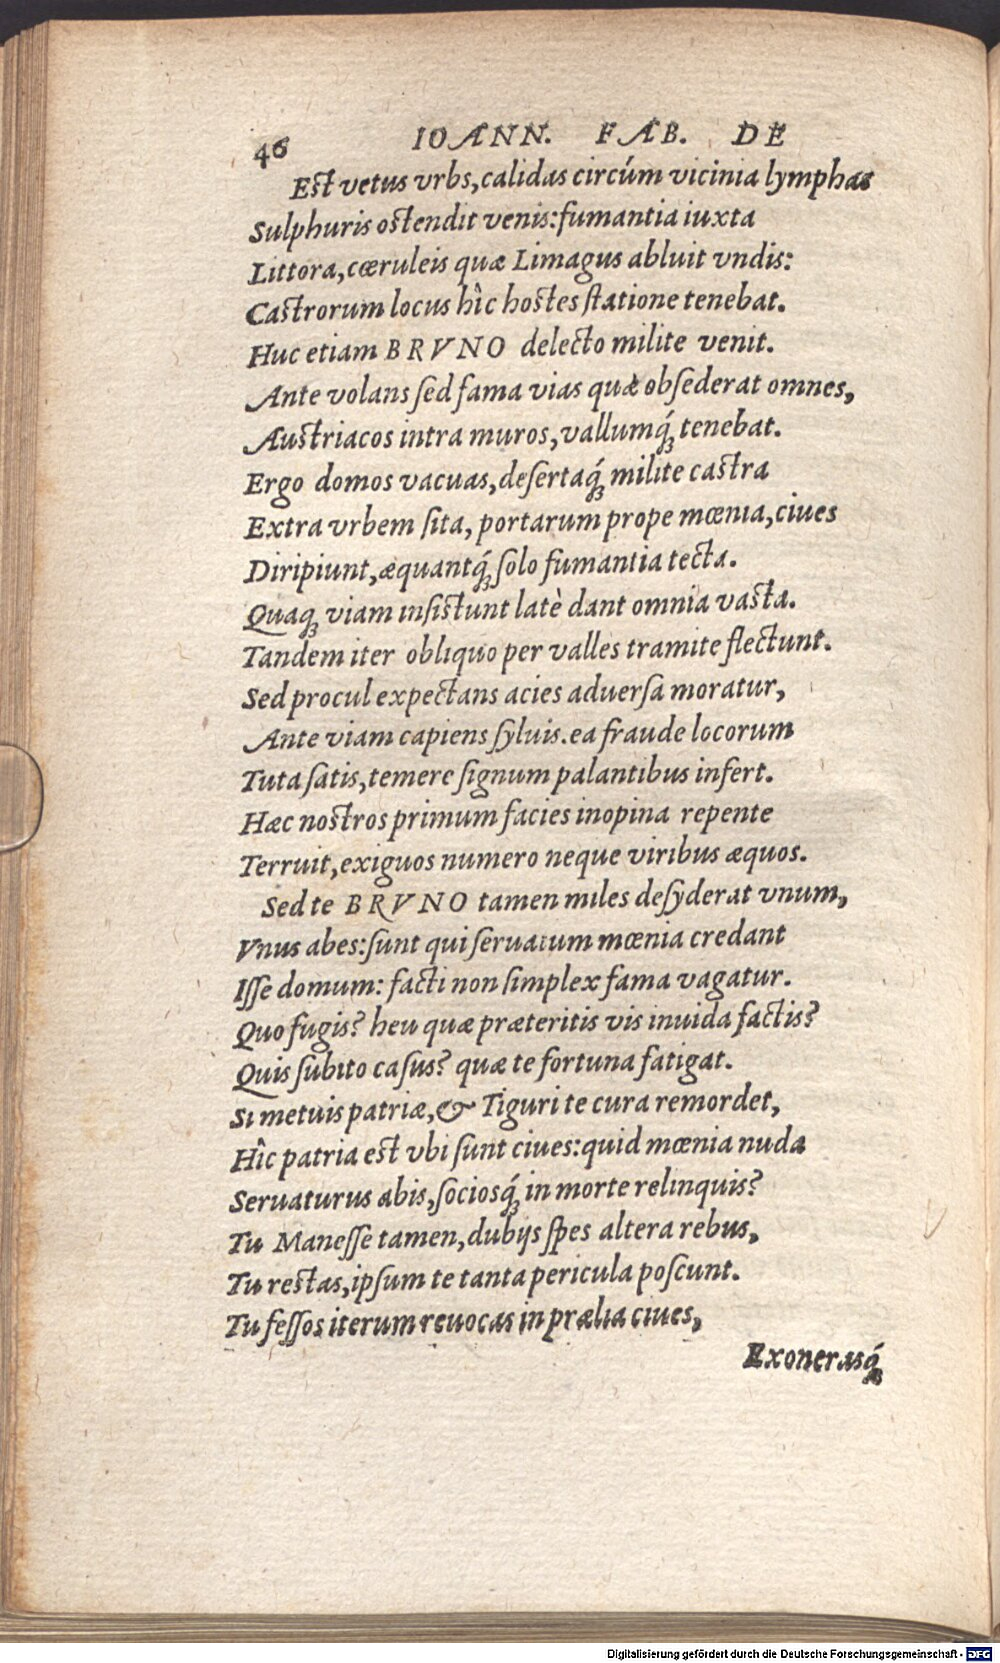 46 IOANN. FAB. DE
Est vetus vrbs, calidas circúm vicinia lymphas
Sulphuris ostendit venis: fumantia iuxta
Littora, cœruleis quæ Limagus abluit vndis:
Castrorum locus hîc hostes statione tenebat.
Huc etiam BRVNO delecto milite venit.
Ante volans sed fama vias quæ obſederat omnes,
Austriacos intra muros, vallumq́; tenebat.
Ergo domos vacuas, deſertaq́; milite castra
Extra vrbem ſita, portarum prope mœnia, ciues
Diripiunt, æquantq́; ſolo fumantia tecta.
Quaq; viam inſistunt latè dant omnia vasta.
Tandem iter obliquo per valles tramite flectunt.
Sed procul expectans acies aduerſa moratur,
Ante viam capiens ſyluis. ea fraude locorum
Tuta ſatis, temere ſignum palantibus infert.
Hæc nostros primum facies inopina repente
Terruit, exiguos numero neque viribus æquos.
Sed te BRVNO tamen miles deſyderat vnum,
Vnus abes: ſunt qui ſeruatum mœnia credant
Iſſe domum: facti non ſimplex fama vagatur.
Quo fugis? heu quæ præteritis vis inuida factis?
Quis ſubito caſus? quæ te fortuna fatigat.
Si metuis patriæ, & Tiguri te cura remordet,
Hîc patria est vbi ſunt ciues: quid mœnia nuda
Seruaturus abis, ſociosq́; in morte relinquis?
Tu Maneſſe tamen, dubijs ſpes altera rebus,
Tu restas, ipſum te tanta pericula poſcunt.
Tu feſſos iterum reuocas in prælia ciues,
Exonerasq́;
Digitalisierung gefördert durch die Deutsche Forschungsgemeinschaft - DFG